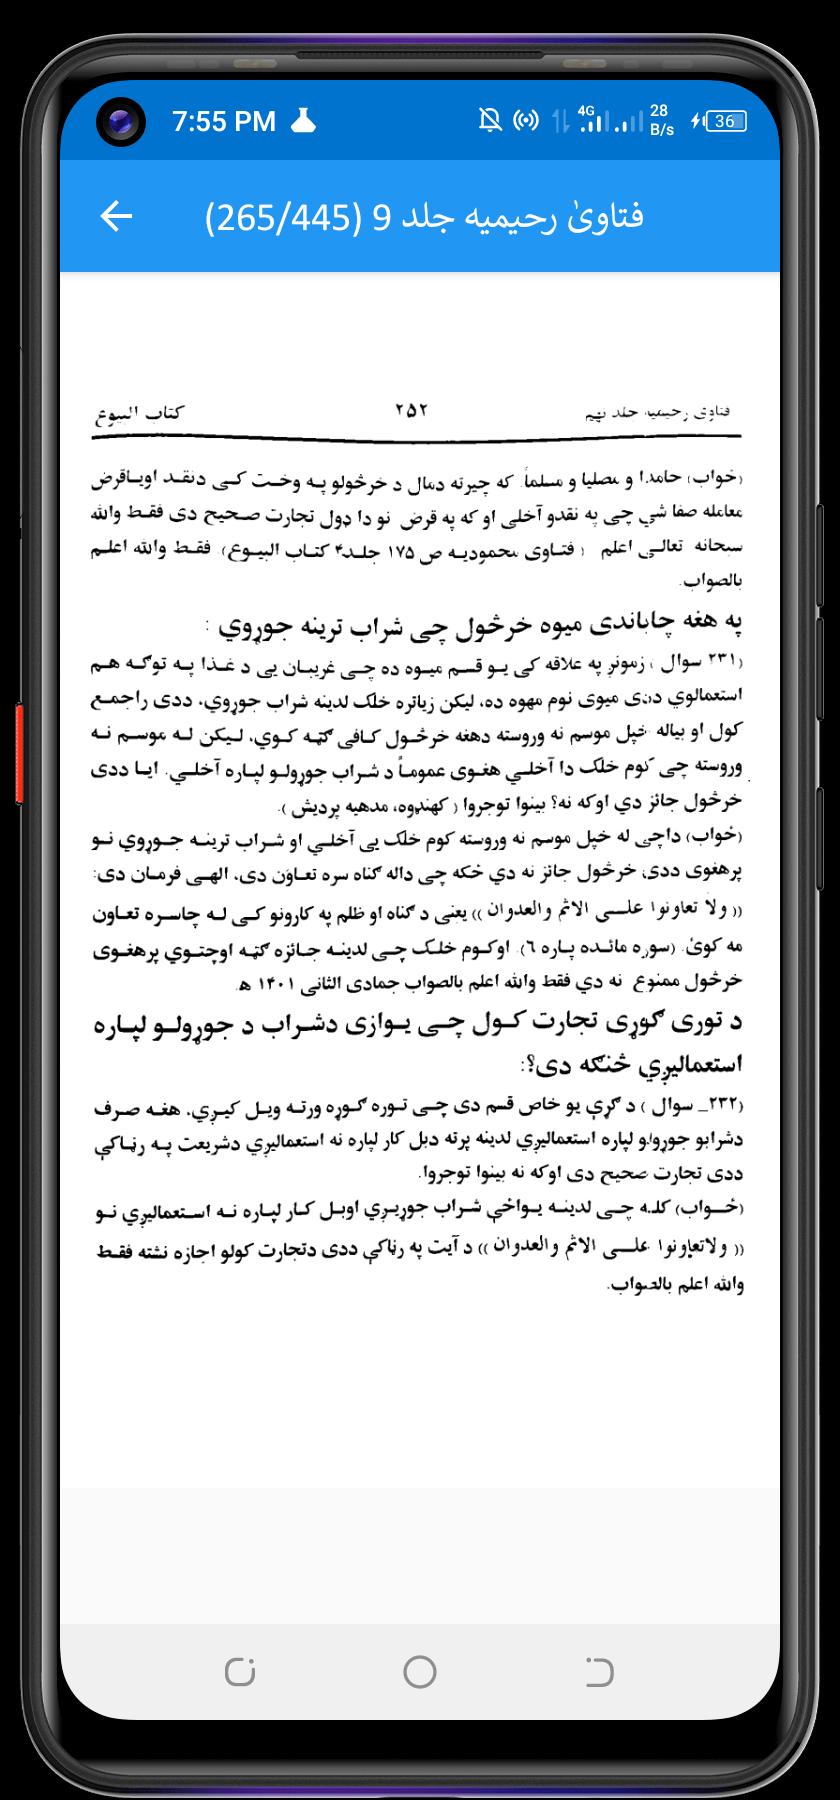 7:55 PM
4G
28 B/s
36
فتاویٰ رحیمیه جلد 9 (265/445)
فتاوی رحیمیه جلد نهم
۲۵۲
کتاب البیوع
(ځواب) حامدا و مصلیا و مسلماً. که چیرته دمال د خرڅولو په وخت کی دنقد اویاقرض
معامله صفا شي چی په نقدو آخلی او که په قرض نو دا ډول تجارت صحیح دی فقط والله
سبحانه تعالی اعلم ( فتاوی محمودیه ص ۱۷۵ جلد۴ کتاب البیوع). فقط والله اعلم
بالصواب.
په هغه چاباندی میوه خرڅول چی شراب ترینه جوړوي :
(۲۳۱ سوال ) زمونږ په علاقه کی یو قسم میوه ده چی غریبان یی د غذا په توګه هم
استعمالوي ددی میوی نوم مهوه ده، لیکن زیاتره خلک لدینه شراب جوړوي، ددی راجمع
کول او بیاله خپل موسم نه وروسته دهغه خرڅول کافی ګټه کوي، لیکن له موسم نه
وروسته چی کوم خلک دا آخلي هغوی عموماً د شراب جوړولو لپاره آخلي. ایا ددی
خرڅول جائز دي اوکه نه؟ بینوا توجروا ( کهنډوه، مدهیه پردیش ).
(ځواب) داچی له خپل موسم نه وروسته کوم خلک یی آخلي او شراب ترینه جوړوي نو
پرهغوی ددی خرڅول جائز نه دي ځکه چی داله ګناه سره تعاون دی، الهی فرمان دی:
(( ولا تعاونوا علی الاثم والعدوان )) یعنی د ګناه او ظلم په کارونو کی له چاسره تعاون
مه کوئ. (سوره مائده پاره ٦). اوکوم خلک چی لدینه جائزه ګټه اوچتوي پرهغوی
خرڅول ممنوع نه دي فقط والله اعلم بالصواب جمادی الثانی ۱۴۰۱ هـ
د توری ګوړی تجارت کول چی یوازی دشراب د جوړولو لپاره
استعمالیږي څنګه دی؟:
(۲۳۲_ سوال ) د ګړې یو خاص قسم دی چی توره ګوړه ورته ویل کیږي، هغه صرف
دشرابو جوړولو لپاره استعمالیږي لدینه پرته دبل کار لپاره نه استعمالیږي دشریعت په رڼاکې
ددی تجارت صحیح دی اوکه نه بینوا توجروا.
(ځواب) کله چی لدینه یواځې شراب جوړیږي اوبل کار لپاره نه استعمالیږي نو
(( ولاتعاونوا علی الاثم والعدوان )) د آیت په رڼاکې ددی دتجارت کولو اجازه نشته فقط
والله اعلم بالصواب.